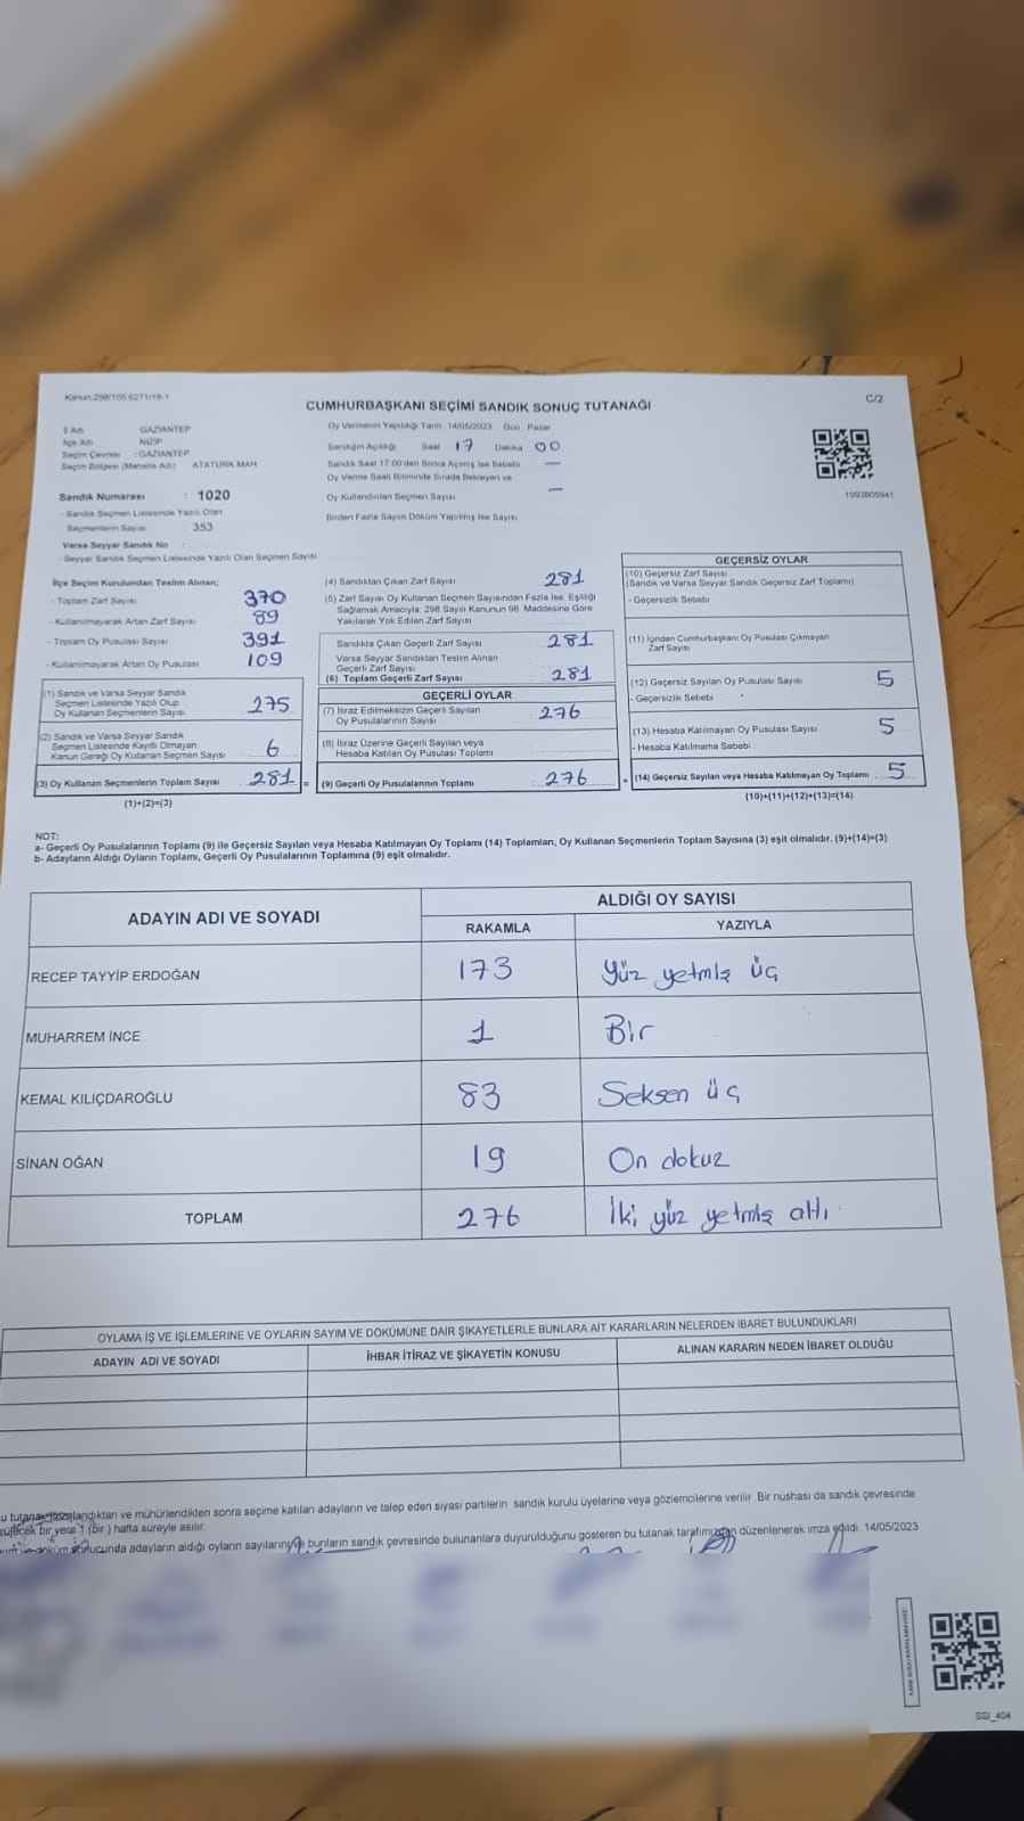 Kanun:298/105 6271/19-1
CUMHURBAŞKANI SEÇİMİ SANDIK SONUÇ TUTANAĞI
C/2
İl Adı GAZİANTEP
Oy Vermenin Yapıldığı Tarih 14/05/2023 Gün Pazar
İlçe Adı
Sandığın Açıldığı Saat 17 Dakika 00
Seçim Çevresi : GAZİANTEP
Seçim Bölgesi (Mahalle Adı) ATATÜRK MAH
Sandık Saat 17:00'den Sonra Açılmış İse Sebebi —
Oy Verme Saati Bitiminde Sırada Bekleyen ve
Oy Kullandırılan Seçmen Sayısı —
Sandık Numarası : 1020
- Sandık Seçmen Listesinde Yazılı Olan
Seçmenlerin Sayısı 353
Birden Fazla Sayım Döküm Yapılmış İse Sayısı
Varsa Seyyar Sandık No :
- Seyyar Sandık Seçmen Listesinde Yazılı Olan Seçmen Sayısı
İlçe Seçim Kurulundan Teslim Alınan;
- Toplam Zarf Sayısı 370
- Kullanılmayarak Artan Zarf Sayısı 89
- Toplam Oy Pusulası Sayısı 391
- Kullanılmayarak Artan Oy Pusulası 109
(1) Sandık ve Varsa Seyyar Sandık
Seçmen Listesinde Yazılı Olup
Oy Kullanan Seçmenlerin Sayısı 275
(2) Sandık ve Varsa Seyyar Sandık
Seçmen Listesinde Kayıtlı Olmayan
Kanun Gereği Oy Kullanan Seçmen Sayısı 6
(3) Oy Kullanan Seçmenlerin Toplam Sayısı 281 =
(1)+(2)=(3)
(4) Sandıktan Çıkan Zarf Sayısı 281
(5) Zarf Sayısı Oy Kullanan Seçmen Sayısından Fazla İse, Eşitliği
Sağlamak Amacıyla; 298 Sayılı Kanunun 98. Maddesine Göre
Yakılarak Yok Edilen Zarf Sayısı
Sandıkta Çıkan Geçerli Zarf Sayısı 281
Varsa Seyyar Sandıktan Teslim Alınan
Geçerli Zarf Sayısı
(6) Toplam Geçerli Zarf Sayısı 281
GEÇERLİ OYLAR
(7) İtiraz Edilmeksizin Geçerli Sayılan
Oy Pusulalarının Sayısı 276
(8) İtiraz Üzerine Geçerli Sayılan veya
Hesaba Katılan Oy Pusulası Toplamı
(9) Geçerli Oy Pusulalarının Toplamı 276
GEÇERSİZ OYLAR
(10) Geçersiz Zarf Sayısı
(Sandık ve Varsa Seyyar Sandık Geçersiz Zarf Toplamı)
- Geçersizlik Sebebi
(11) İçinden Cumhurbaşkanı Oy Pusulası Çıkmayan
Zarf Sayısı
(12) Geçersiz Sayılan Oy Pusulası Sayısı 5
- Geçersizlik Sebebi
(13) Hesaba Katılmayan Oy Pusulası Sayısı 5
- Hesaba Katılmama Sebebi
+ (14) Geçersiz Sayılan veya Hesaba Katılmayan Oy Toplamı 5
(10)+(11)+(12)+(13)=(14)
NOT:
a- Geçerli Oy Pusulalarının Toplamı (9) ile Geçersiz Sayılan veya Hesaba Katılmayan Oy Toplamı (14) Toplamları, Oy Kullanan Seçmenlerin Toplam Sayısına (3) eşit olmalıdır. (9)+(14)=(3)
b- Adayların Aldığı Oyların Toplamı, Geçerli Oy Pusulalarının Toplamına (9) eşit olmalıdır.
ADAYIN ADI VE SOYADI
ALDIĞI OY SAYISI
RAKAMLA YAZIYLA
RECEP TAYYİP ERDOĞAN 173 Yüz yetmiş üç
MUHARREM İNCE 1 Bir
KEMAL KILIÇDAROĞLU 83 Seksen üç
SİNAN OĞAN 19 On dokuz
TOPLAM 276 İki yüz yetmiş altı
OYLAMA İŞ VE İŞLEMLERİNE VE OYLARIN SAYIM VE DÖKÜMÜNE DAİR ŞİKAYETLERLE BUNLARA AİT KARARLARIN NELERDEN İBARET BULUNDUKLARI
ADAYIN ADI VE SOYADI İHBAR İTİRAZ VE ŞİKAYETİN KONUSU ALINAN KARARIN NEDEN İBARET OLDUĞU
ve mühürlendikten sonra seçime katılan adayların ve talep eden siyasi partilerin sandık kurulu üyelerine veya gözlemcilerine verilir. Bir nüshası da sandık çevresinde
bir yere 1 (bir) hafta süreyle asılır.
adayların aldığı oyların sayılarını bunların sandık çevresinde bulunanlara duyurulduğunu gösteren bu tutanak tarafımızdan düzenlenerek imza edildi. 14/05/2023
SGI_404